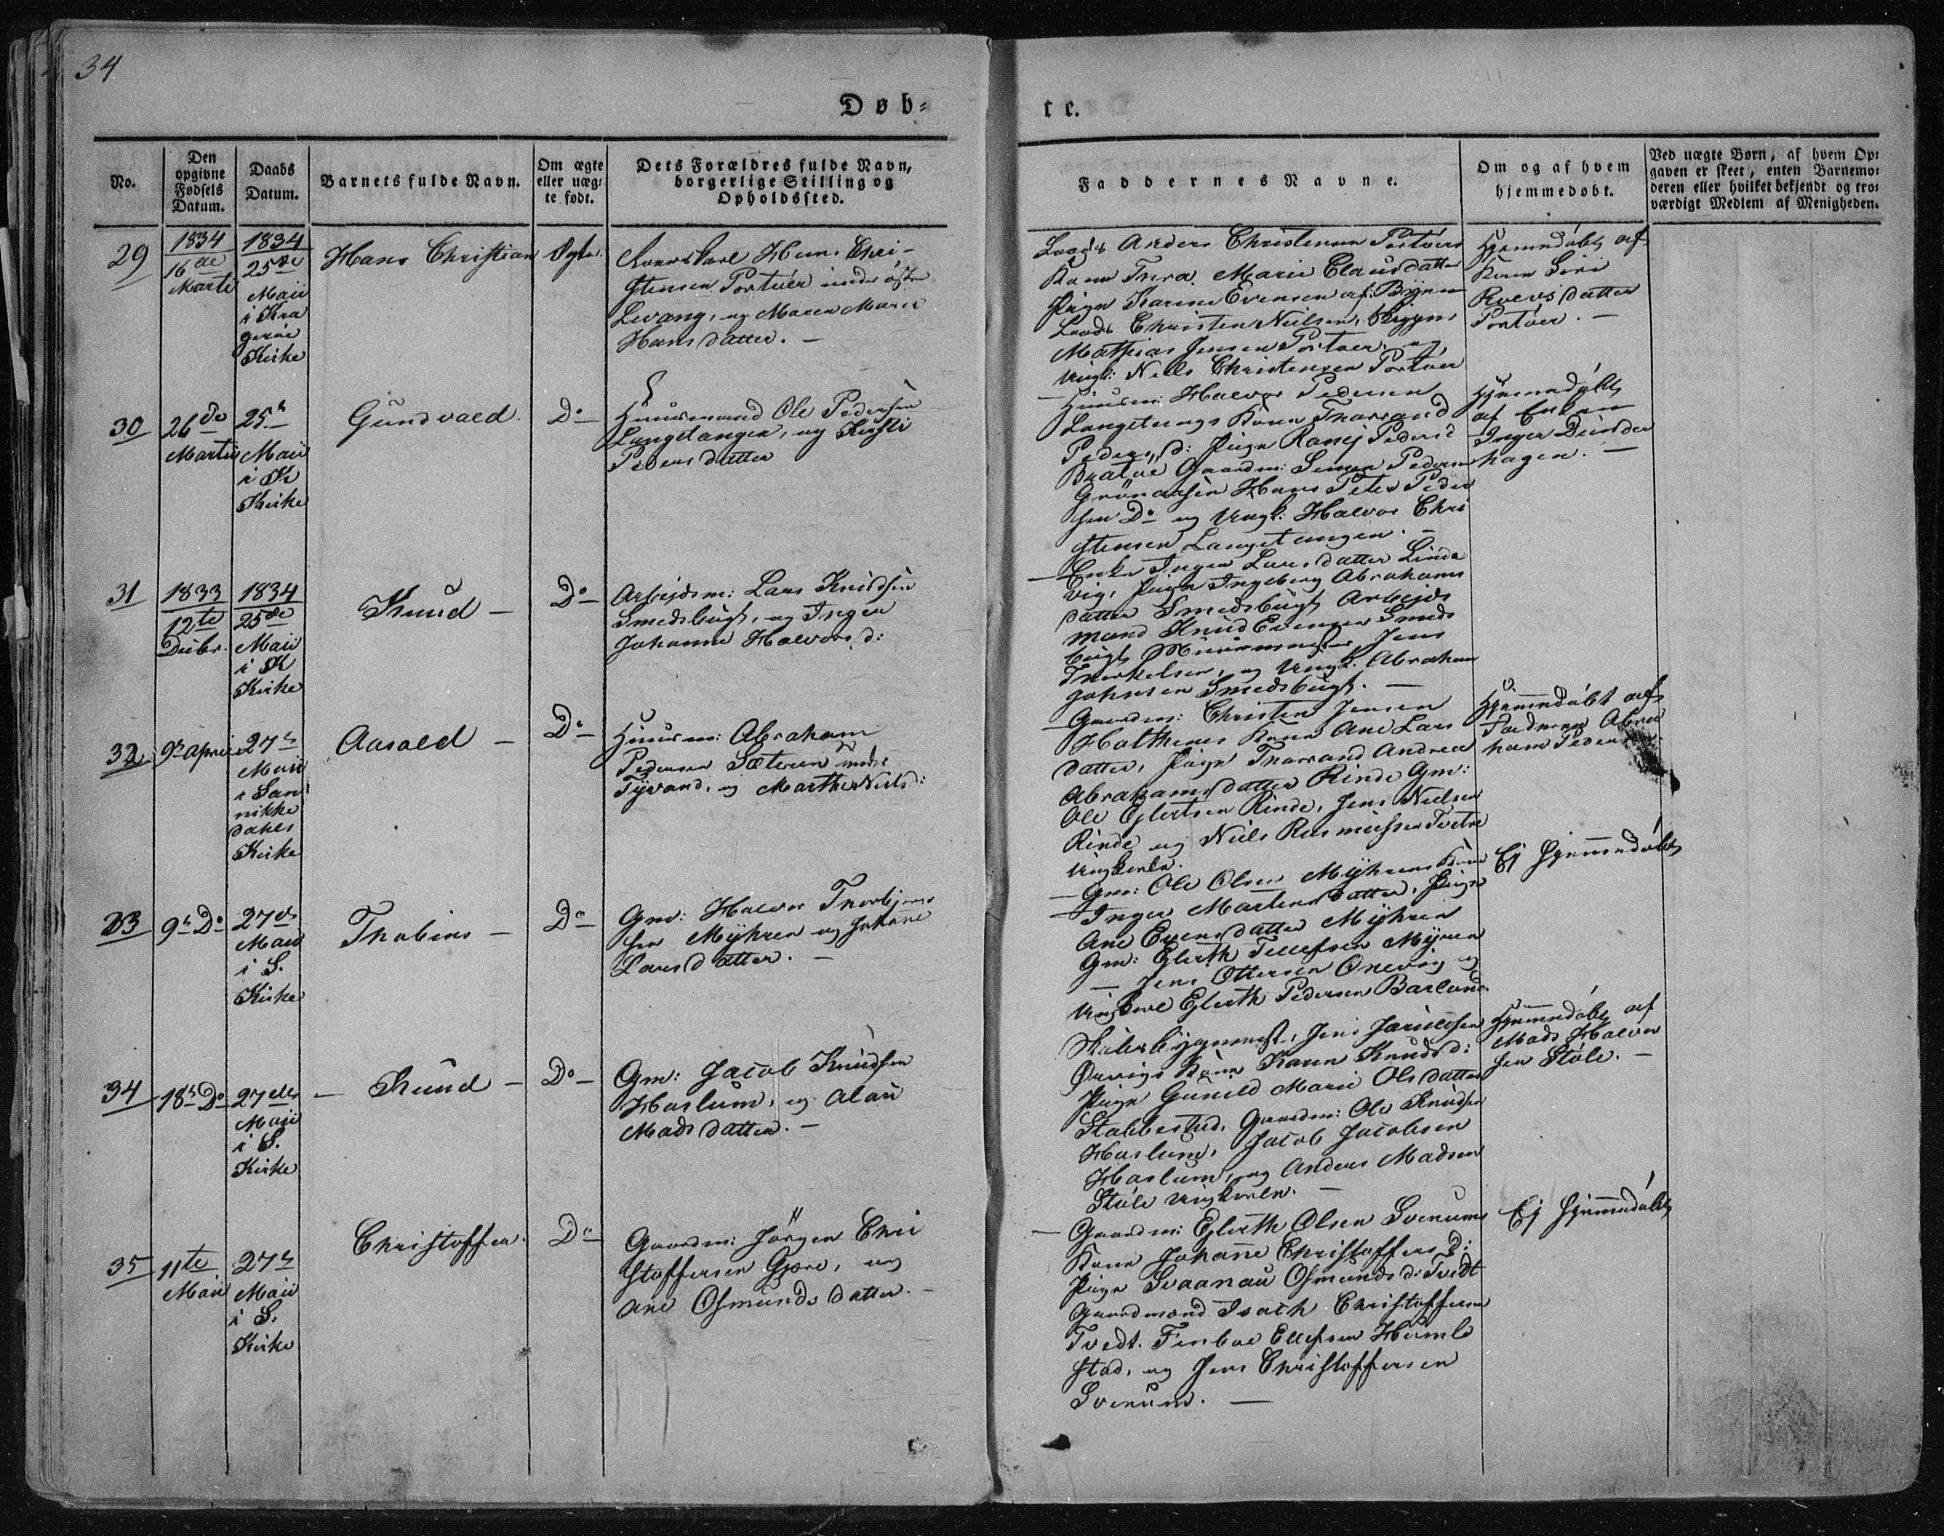 34
Døb-
te.
No.
Den opgivne Fødsels Datum.
Daabs Datum.
Barnets fulde Navn.
Om ægte eller uæg-te født.
Dets Forældres fulde Navn, borgerlige Stilling og Opholdssted.
Faddernes Navne.
Om og af hvem hjemmedøbt.
Ved uægte Børn, af hvem Op-
gaven er skeet, enten Barnemo-
deren eller hvilket bekjendt og tro-
værdigt Medlem af Menigheden.
29
1834
16de
Marts
1834
25de
Maii
i Kra
gerøe
Kirke
Hans Christian
Ægte
Hans Chri-
stensen Portøer under
Levang, og Maren Marie
Hansdatter. —
Lods Anders Christensen Portøers
Kone Thora Marie Clausdatter
Pige Karine Evensen af Byen
Lods Christen Nielsen,
Mathias Jensen Portøer, og
Ungk: Niels Christensen Portøer
Hjemmdøbt af
Kone Siri
Roersdatter
Portøer. —
30
26de
Martii
25de
Maii
i K
Kirke
Gundvald
Do —
Huusmand Ole Pedersen
Langetangen, og Kirsti
Pedersdatter
— Huusm: Halvor Pedersen
Langetangs Kone Thorrand
Pedersd: Pige Ranej Peders
Bratøe Gaardm: Simen Pedersen
Grönaasen Hans Peter Peder
sen Do og Ungk: Halvor Chri
stensen Langetangen. —
Hjemmdøbt
af Enken
Inger Dunder
hagen. —
31
1833
12te
Decbr.
1834
25de
Maii
i K
Kirke
Knud —
Do
Arbejdsm: Lars Knudsen
Smedsbugt, og Inger
Johanne Halvorsd:
— Enke Inger Larsdatter Linde
vig, Pige Ingeborg Abrahams
datter Smedsbugt Arbejds
mand Knud Evensen Smeds
bugt Jens
Therkelsen, og Ungk. Abraham
Johnsen Smedsbugt. —
32
9de April
27de
Maii
i San
nikke
dahls
Kirke
Aasold —
Do
Huusm: Abraham
Pedersen Sæteren under
Tyvand, og Marthe Nielsd:
— Gaardm: Christen Jensen
Holthenes Kone Ane Lars
datter, Pige Thorrand Andrea
Abrahamsdatter Rinde Gm:
Ole Eglertsen Rinde, Jens Nielsen
Rinde og Niels Rasmussen Tvetne
Ungkarle.
Hjemmdøbt af
Faderen Abra
ham Pedersen.
33
9de Do
27de
Maii
i S.
Kirke
Thobias —
Do
Gm: Halvor Thorbjørn
sen Myhren og Johane
Larsdatter. —
— Gm: Ole Olsen Myhrens Kone
Inger Martensdatter, Pige
Ane Evensdatter Myhren
Gm: Eglerth Tellefsen Myren
— Jens Ottersen Onevog og
Ungkarl Eglerth Pedersen Barland.
Ej hjemmedøbt
34
18de Do
27de
Maii
i S.
Kirke
— Knud —
Do —
Gm: Jacob Knudsen
Haslum, og Alau
Madsdatter. —
Jens Jarulfsen
Ørvigs Kone Karen Knudsd:
Pige Gunild Marie Olsdatter
Stabbestad, Gaardm: Ole Knudsen
Haslum, Jacob Jacobsen
Haslum, og Anders Madsen
Støle Ungkarle. —
Hjemmdøbt af
Mads Halvor
sen Støle. —
35
11te
Maii
27de
Maii
i S.
Kirke
Christoffer
Do —
Gaardm: Jørgen Chri
stoffersen Gjære, og
Ane Osmundsdatter. —
— Gaardm: Eglerth Olsen Svenums
Kone Johane Christoffersd:
Pige Svaanau Osmundsd: Tvedt
Gaardmand Isach Christoffersen
Tvedt. Finboe Ellefsen Humle
stad, og Jens Christoffersen
Svenum. —
Ej hjemmdøbt